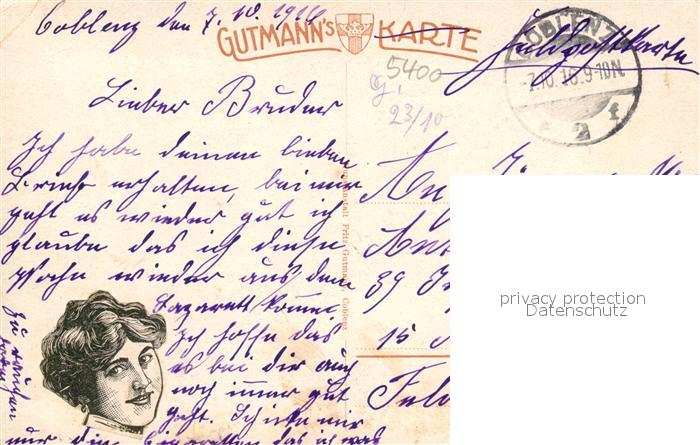 Coblenz den 7.10.1916
GUTMANN'S KARTE
Feldpostkarte
COBLENZ
-7.10.16.9-10N.
* 2 f
5400
23/10
Lieber Bruder
Ich habe deinen lieben
Brief erhalten, bei mir
geht es wieder gut ich
glaube das ich diese
Woche wieder aus dem
Lazarett komme
Ich hoffe das
es bei dir auch
noch immer gut
geht. Ich
nur die das ich was
zu rauchen
habe
Kunstanstalt Fritz Gutmann, Coblenz
An
39
15
privacy protection
Datenschutz